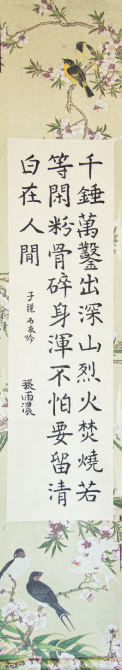 千錘萬鑿出深山烈火焚燒若
等閑粉骨碎身渾不怕要留清
白在人間
于謙石灰吟
張雨濃